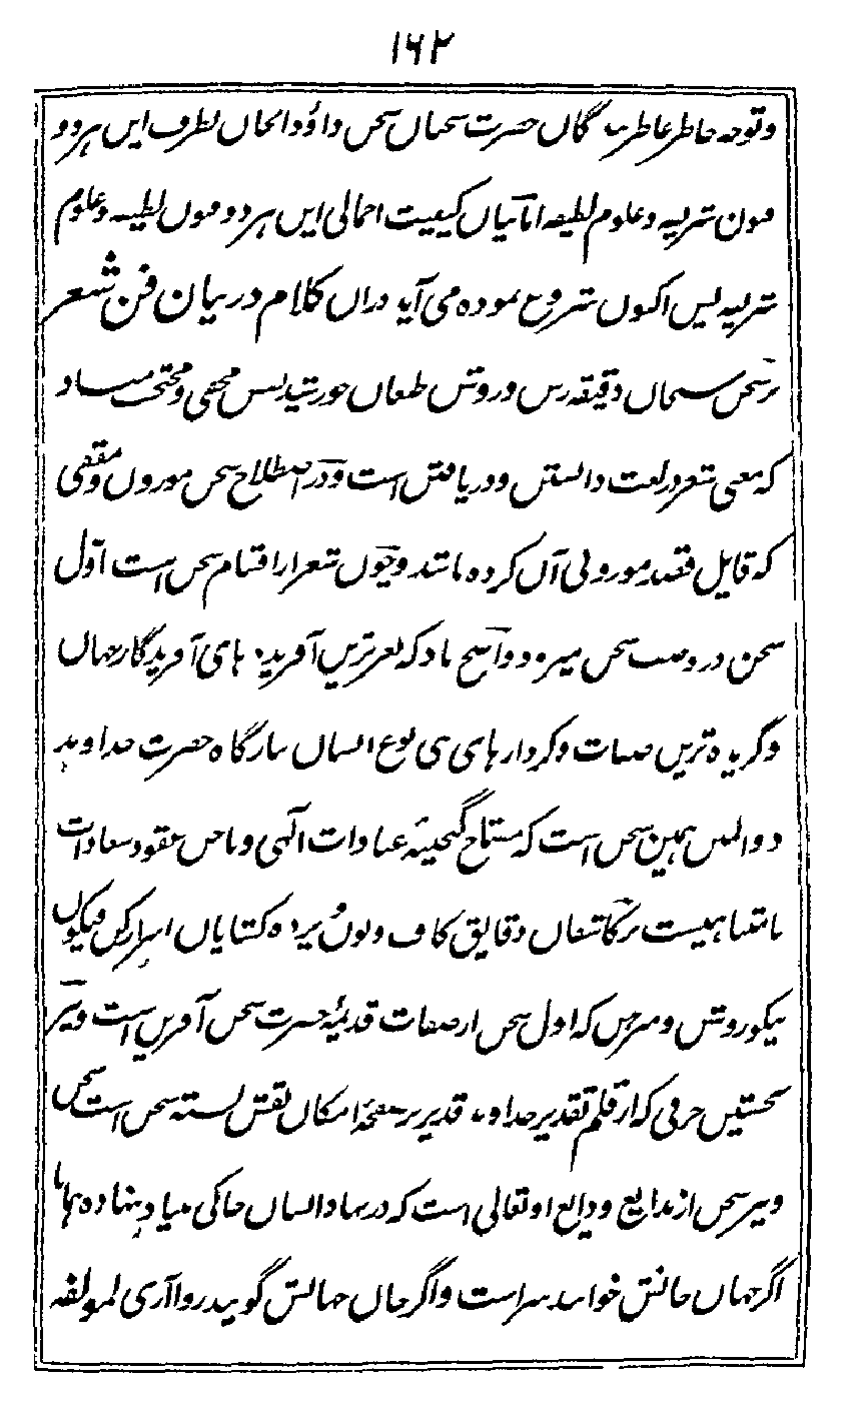 ۱۶۲
و توجه خاطر عاطر بندگان حضرت سخن داؤد الحان بطرف این هر دو
فنون شریفه و علوم لطیفه اما بیان کیفیت اجمالی این هر دو فنون لطیفه و علوم
شریفه پس اکنون شروع نموده می آید دران کلام در بیان فن شعر
بر سخن دقیقه رس و روشن طبعان خورشید نفس مخفی و محتجب مباد
که معنی شعر در لغت دانستن و دریافتن است و در اصطلاح سخن موزون و مقفی
که قایل قصد موزونی آن کرده باشد و چون شعر از اقسام سخن است اول
سخن در وصف سخن میرود واضح باد که نغزترین آفریده های آفریدگار جهان
و گزیده ترین صفات و کردار های بنی نوع انسان ببارگاه حضرت خداوند
ذوالمنن همین سخن است که مفتاح گنجینهٔ عبادات الٰهی و ناخن عقود سعادات
نامتناهیست بر کاشفان دقایق کاف و نون و پرده کشایان اسرار کن فیکون
نیکو روشن و مبرهن که اول سخن از صفات قدیمهٔ حضرت سخن آفرین است و نیز
نخستین حرفی که از قلم تقدیر خداوند قدیر بر صفحهٔ امکان نقش بسته سخن است سخن
و نیز سخن از بدایع ودایع او تعالی است که در نهاد انسان خاکی بنیاد بنهاده همانا
اگر جهان جانش خوانند سزاست و اگر جان جهانش گویند روا آری لمولفه